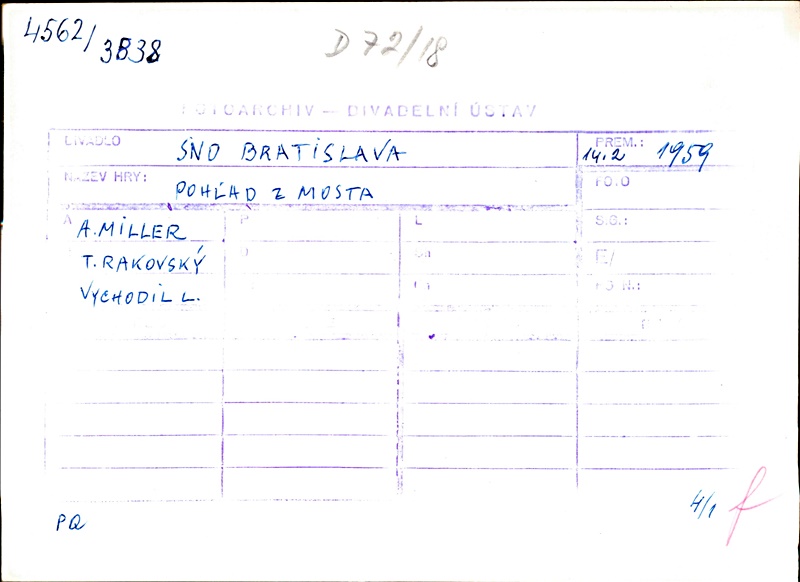 4562/
3B38
D 72/18
FOTOARCHIV — DIVADELNÍ ÚSTAV
DIVADLO SND BRATISLAVA PREM.:
14.2 1959
NÁZEV HRY: POHĽAD Z MOSTA FO.O
A A. MILLER P L S.G.:
T. RAKOVSKÝ
VYCHODIL L.
4/1
PQ